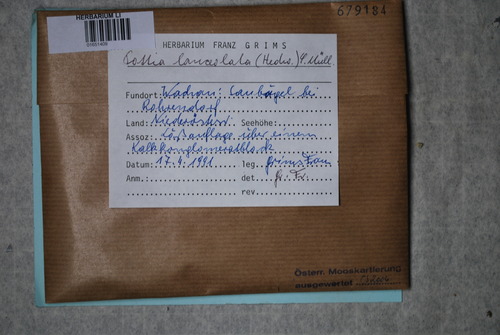 679184
HERBARIUM LI
HERBARIUM FRANZ GRIMS
Pottia lanceolata (Hedw.) C. Müll.
Fundort: bei
Rohrendorf
Land: Niederösterr. Seehöhe:
Assoz: Lößauflage über einem
Kalkkonglomeratblock
Datum: 17.4.1991 leg. Grims Franz
Anm.: det. Gr. Fr.
rev.
Österr. Mooskartierung
ausgewertet